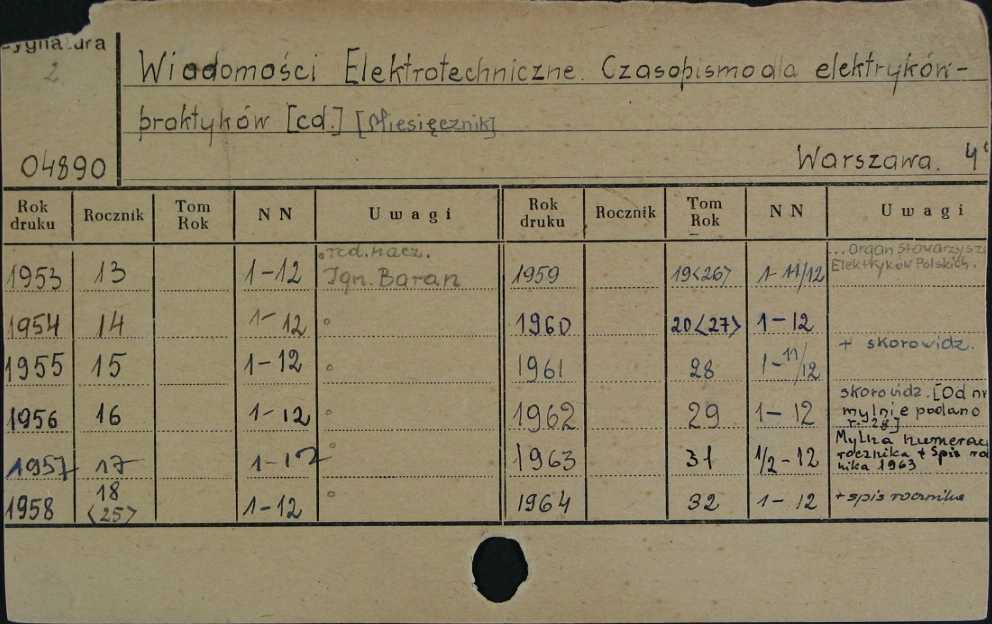 Sygnatura
2
04890
Wiadomości Elektrotechniczne. Czasopismo dla elektryków-
praktyków [cd.] [Miesięcznik]
Warszawa. 4°
Rok druku Rocznik Tom Rok NN Uwagi Rok druku Rocznik Tom Rok NN Uwagi
1953 13 1-12 red. nacz. Ign. Baran 1959 19<26> 1-11/12 ... Organ Stowarzysz Elektryków Polskich.
1954 14 1-12 " 1960 20<27> 1-12
1955 15 1-12 " 1961 28 1-11/12 + skorowidz.
1956 16 1-12 " 1962 29 1-12 skorowidz. [Od nr mylnie podano r. 28]
1957 17 1-12 " 1963 31 1/2-12 Mylna numerac rocznika + Spis ro nika 1963
1958 18 <25> 1-12 " 1964 32 1-12 + spis rocznika